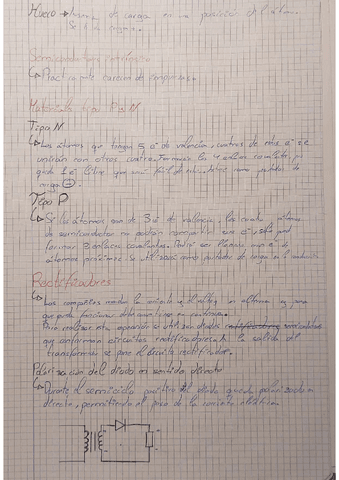 Hueco → de carga en una posición del átomo.
Se
Semiconductores intrínsecos
↳ Practicamente carecen de impurezas.
Materiales tipo P y N
Tipo N
↳ Los átomos que tengan 5 e⁻ de valencia, cuatro de estos e⁻ se
unirán con otros cuatro formando los 4 enlaces covalentes,
queda 1 e⁻ libre que será fácil de portador de
carga ⊖.
Tipo P
↳ Si los átomos son de 3 e⁻ de valencia, los cuatro átomos
de semiconductor no podrán compartir con e⁻, solo
formar 3 enlaces covalentes. Podrá ser llenado por e⁻ de
átomos próximos. Se portador de carga en la
Rectificadores
↳ Las compañías la en alterna
que pueda funcionar en continua.
Para realizar esta operación se utilizan diodos rectificadores semiconductores
que conforman circuitos rectificadores. A la salida del
transformador se pone el circuito rectificador.
Polarización del diodo en sentido directo
↳ Durante el semiciclo positivo el diodo queda polarizado en
directo, permitiendo el paso de la corriente eléctrica.